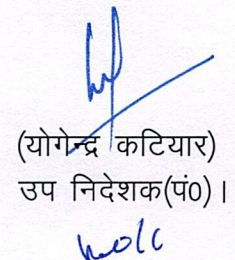 (योगेन्द्र कटियार)
उप निदेशक(पं0)।